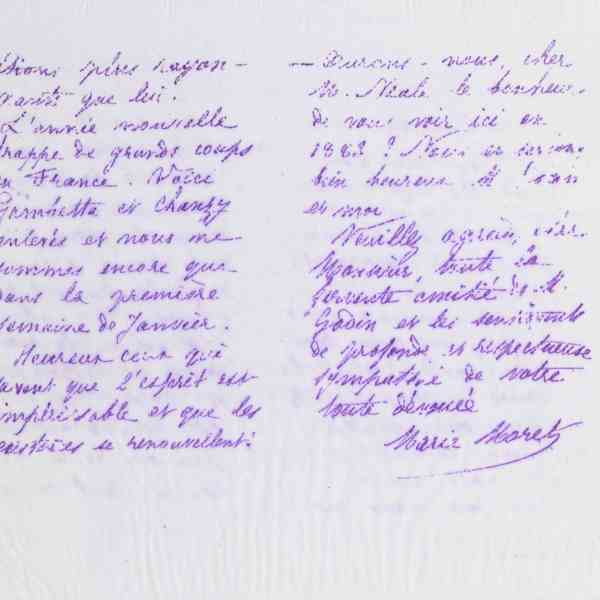 plus rayon-
que lui.
L'année nouvelle
frappe de grands coups
en France. Voici
Gambetta et Chanzy
enterrés et nous ne
sommes encore que
dans la première
semaine de Janvier.
Heureux ceux qui
savent que l'esprit est
impérissable et que les
existences se renouvellent!
— Aurons-nous, cher
M. Neale le bonheur
de vous voir ici en
1883 ? Nous en serions
bien heureux M. Godin
et moi
Veuillez agréer, cher
Monsieur, toute la
fervente amitié de M.
Godin et les sentiments
de profonde et respectueuse
sympathie de votre
toute dévouée
Marie Moret